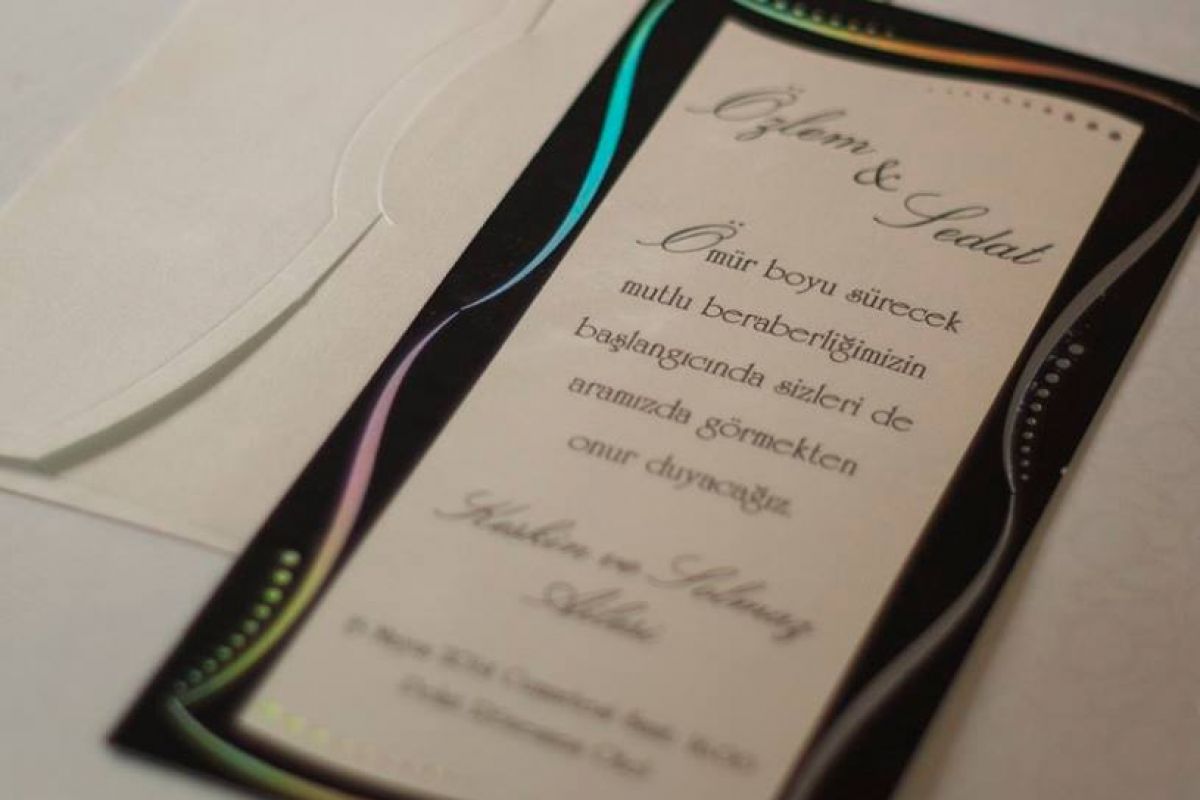 Özlem & Sedat
Ömür boyu sürecek
mutlu beraberliğimizin
başlangıcında sizleri de
aramızda görmekten
onur duyacağız.
Keskin ve Solmaz
Ailesi